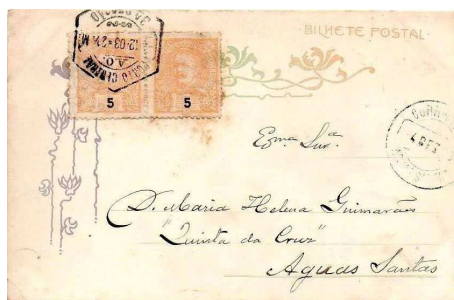 BILHETE POSTAL
PORTO CENTRAL
5
5
Exma Snra
D. Maria Helena Guimarães
"Quinta da Cruz"
Aguas Santas